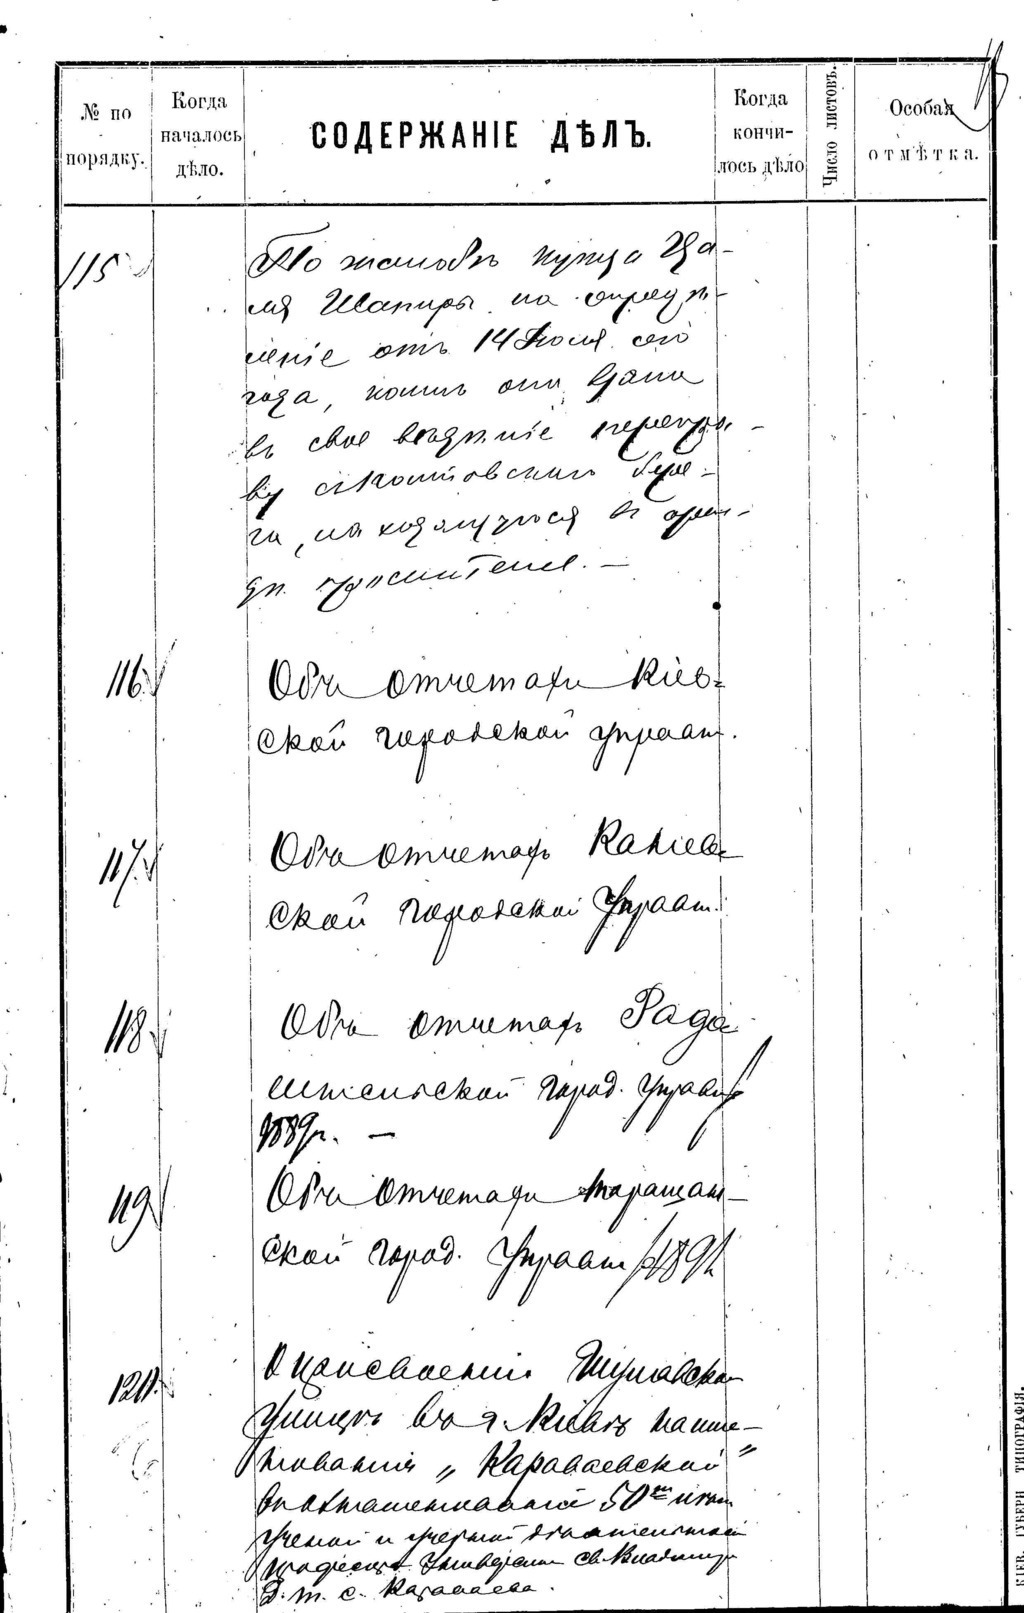 № по порядку.
Когда началось дѣло.
СОДЕРЖАНІЕ ДѢЛЪ.
Когда кончилось дѣло
Число листовъ.
Особая отмѣтка.
115
По жалобѣ купца
Шапиры на опредѣ-
леніе отъ 14 Іюля сего
года,
въ свое вѣдѣніе перепра-
ву
га, находящуюся въ арен-
дѣ просителя. —
116
Объ отчетахъ Кіев-
ской городской управы.
117.
Объ отчетахъ Каневс-
ской Городской Управы.
118
Объ отчетахъ Радо
мысльской город. управы
1889 г. —
119
Объ отчетахъ Таращан-
ской город. Управы 1891
120.
О присвоеніи Шулявской
улицѣ въ г. Кіевѣ наиме-
нованія „Караваевской"
въ ознаменованіе 50 лѣтн
ученой и учебной дѣятельности
професора Университета св. Владиміра
Д. т. с. Караваева.
КІЕВ. ГУБЕРН ТИПОГРАФІЯ.